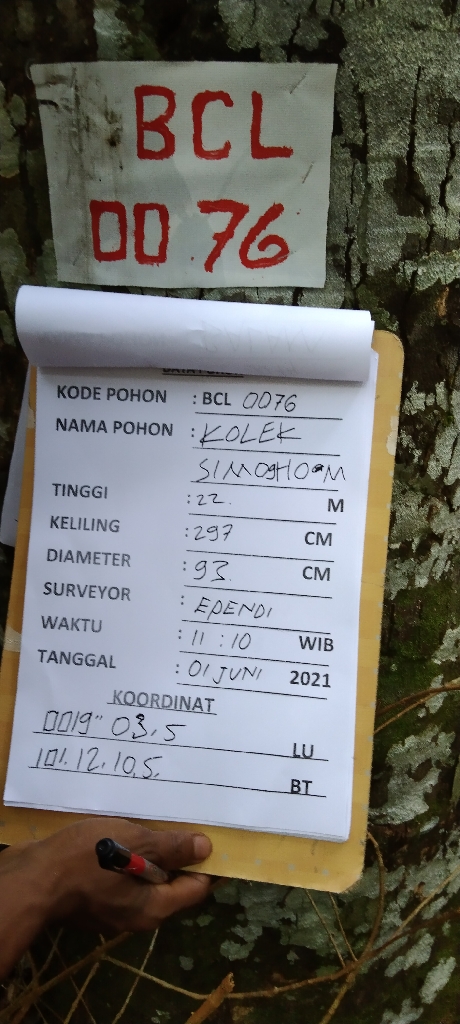 BCL
0076
KODE POHON : BCL 0076
NAMA POHON : KOLEK
SIMOGHOM
TINGGI : 22. M
KELILING : 297 CM
DIAMETER : 93. CM
SURVEYOR : EPENDI
WAKTU : 11 : 10 WIB
TANGGAL : 01 JUNI 2021
KOORDINAT
0019" 03,5 LU
101.12.10,5. BT